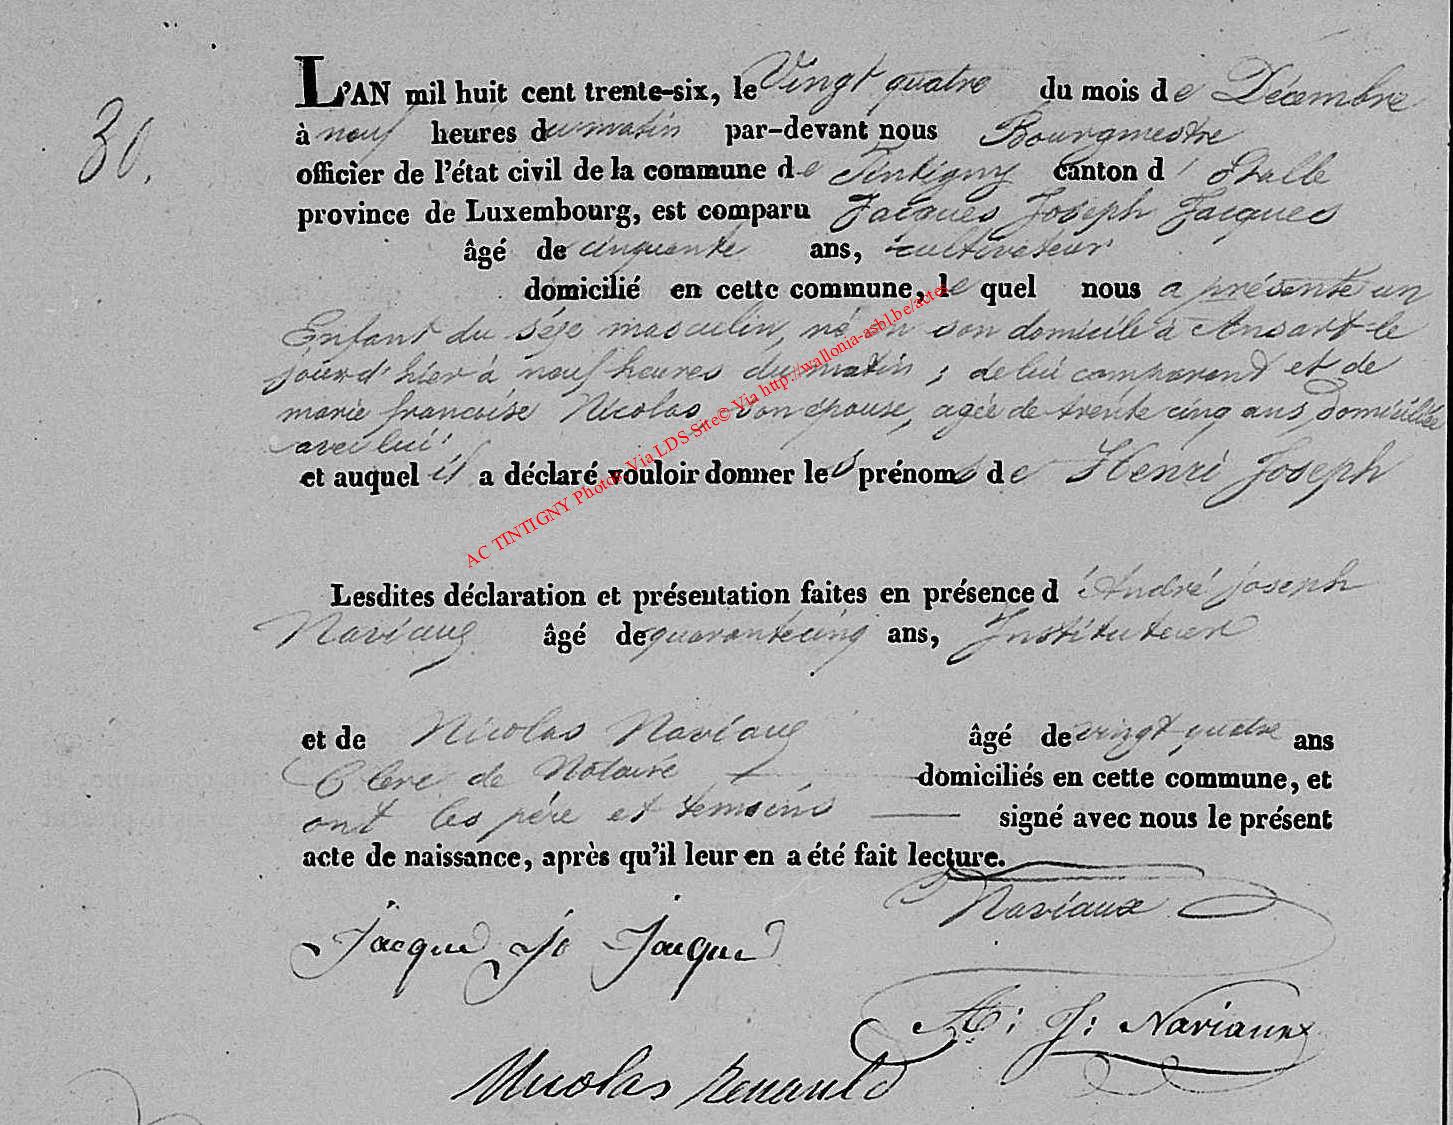 L'AN mil huit cent trente-six, le Vingt quatre du mois de Décembre
30.
à neuf heures du matin par-devant nous Bourgmestre
officier de l'état civil de la commune de Tintigny canton d'Etalle
province de Luxembourg, est comparu Jacques Joseph Jacques
âgé de cinquante ans, cultivateur
domicilié en cette commune, le quel nous a présenté un
Enfant du séxe masculin, né en son domicile à Ansart le
jour d'hier à neuf heures du matin, de lui comparant et de
marie francoise Nicolas, son épouse, agée de trente cinq ans, domiciliée
avec lui
et auquel il a déclaré vouloir donner les prénoms de Henri Joseph
AC TINTIGNY Photos Via LDS Site© Via http://wallonia-asbl.be/actes
Lesdites déclaration et présentation faites en présence d'André joseph
Naviaux âgé de quarante cinq ans, Instituteur
et de Nicolas Naviaux âgé de vingt quatre ans
Clerc de Notaire domiciliés en cette commune, et
ont les père et temoins signé avec nous le présent
acte de naissance, après qu'il leur en a été fait lecture.
Naviaux
Jacque Jo Jacque
A: J: Naviaux
Nicolas Renauld